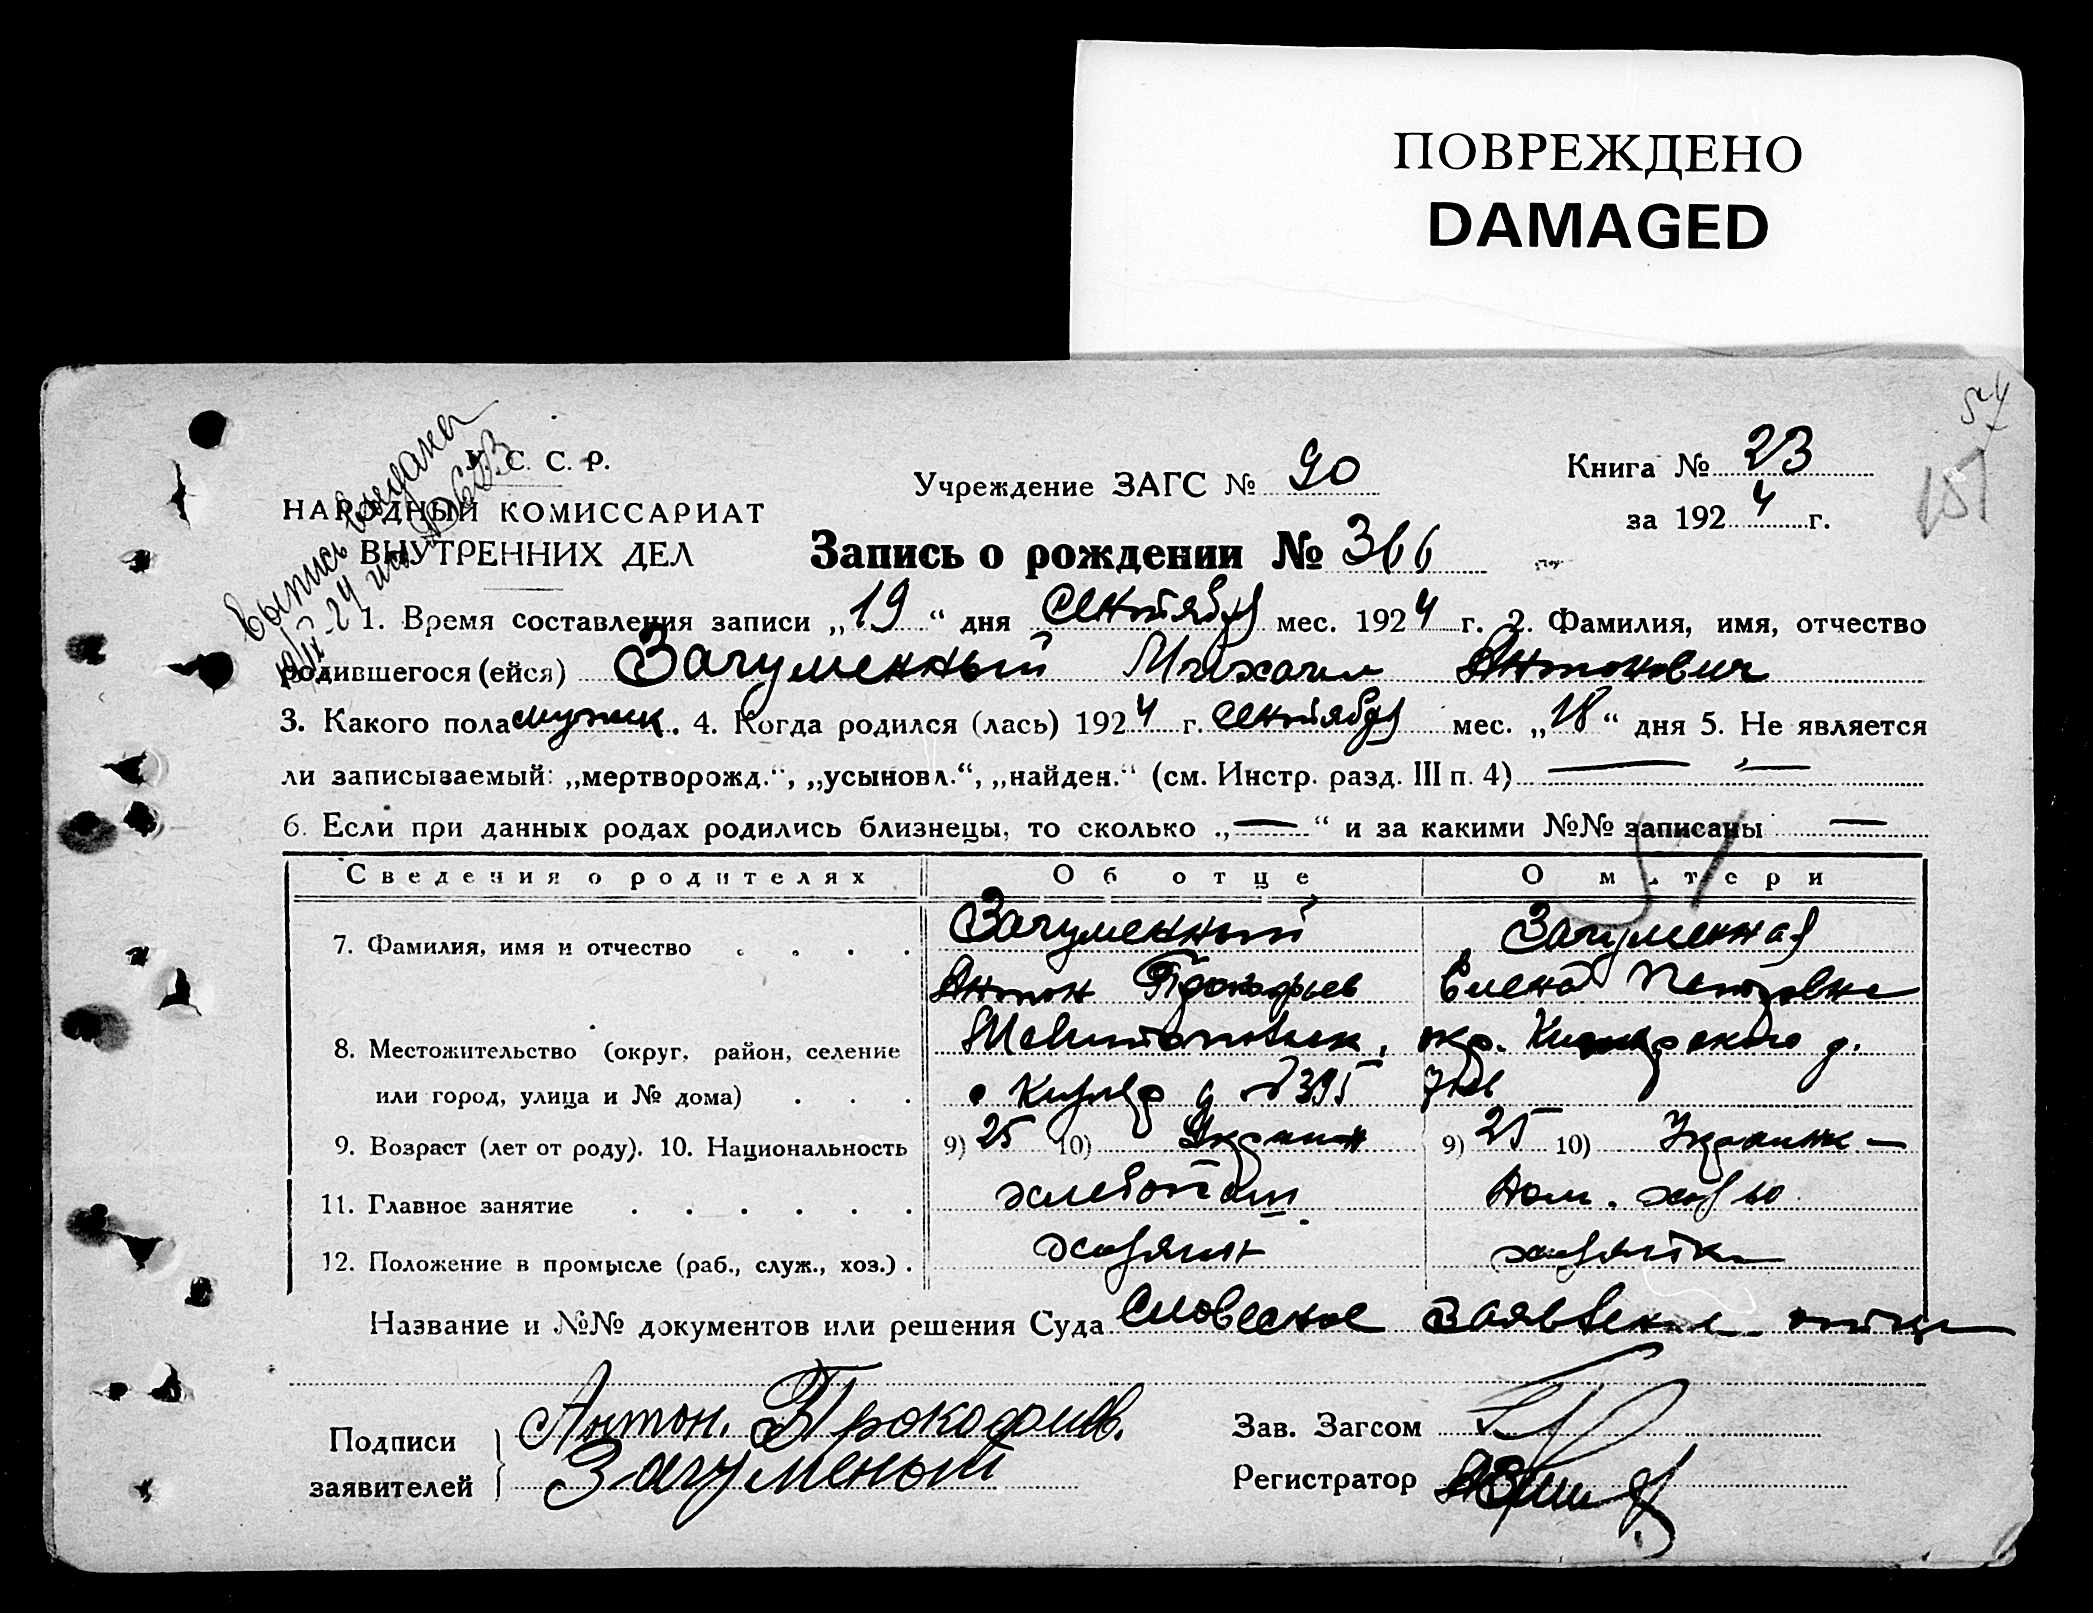 ПОВРЕЖДЕНО
DAMAGED
54
151
Выпись выдана
У. С. С. Р.
НАРОДНЫЙ КОМИССАРИАТ
ВНУТРЕННИХ ДЕЛ
Учреждение ЗАГС № 90
Книга № 23
за 1924 г.
Запись о рождении № 366
1. Время составления записи „19“ дня сентября мес. 1924 г. 2. Фамилия, имя, отчество
родившегося (ейся) Загуменный Михаил Антонович
3. Какого пола мужск. 4. Когда родился (лась) 1924 г. сентября мес. „18“ дня 5. Не является
ли записываемый: „мертворожд.“, „усыновл.“, „найден.“ (см. Инстр. разд. III п. 4) — —
6. Если при данных родах родились близнецы, то сколько „—“ и за какими №№ записаны —
Сведения о родителях Об отце О матери
7. Фамилия, имя и отчество Загуменный Загуменная
Антон Прокофьев Елена
8. Местожительство (округ, район, селение Мелитопольск. окр.
или город, улица и № дома) № 395
9. Возраст (лет от роду). 10. Национальность 9) 25 10) Украин 9) 25 10) Украинк —
11. Главное занятие хлебопаш Дом. хоз-во
12. Положение в промысле (раб., служ., хоз.) хозяин хозяйка
Название и №№ документов или решения Суда Словесное заявление отца
Подписи Антон. Прокофиев.
заявителей Загуменый
Зав. Загсом
Регистратор